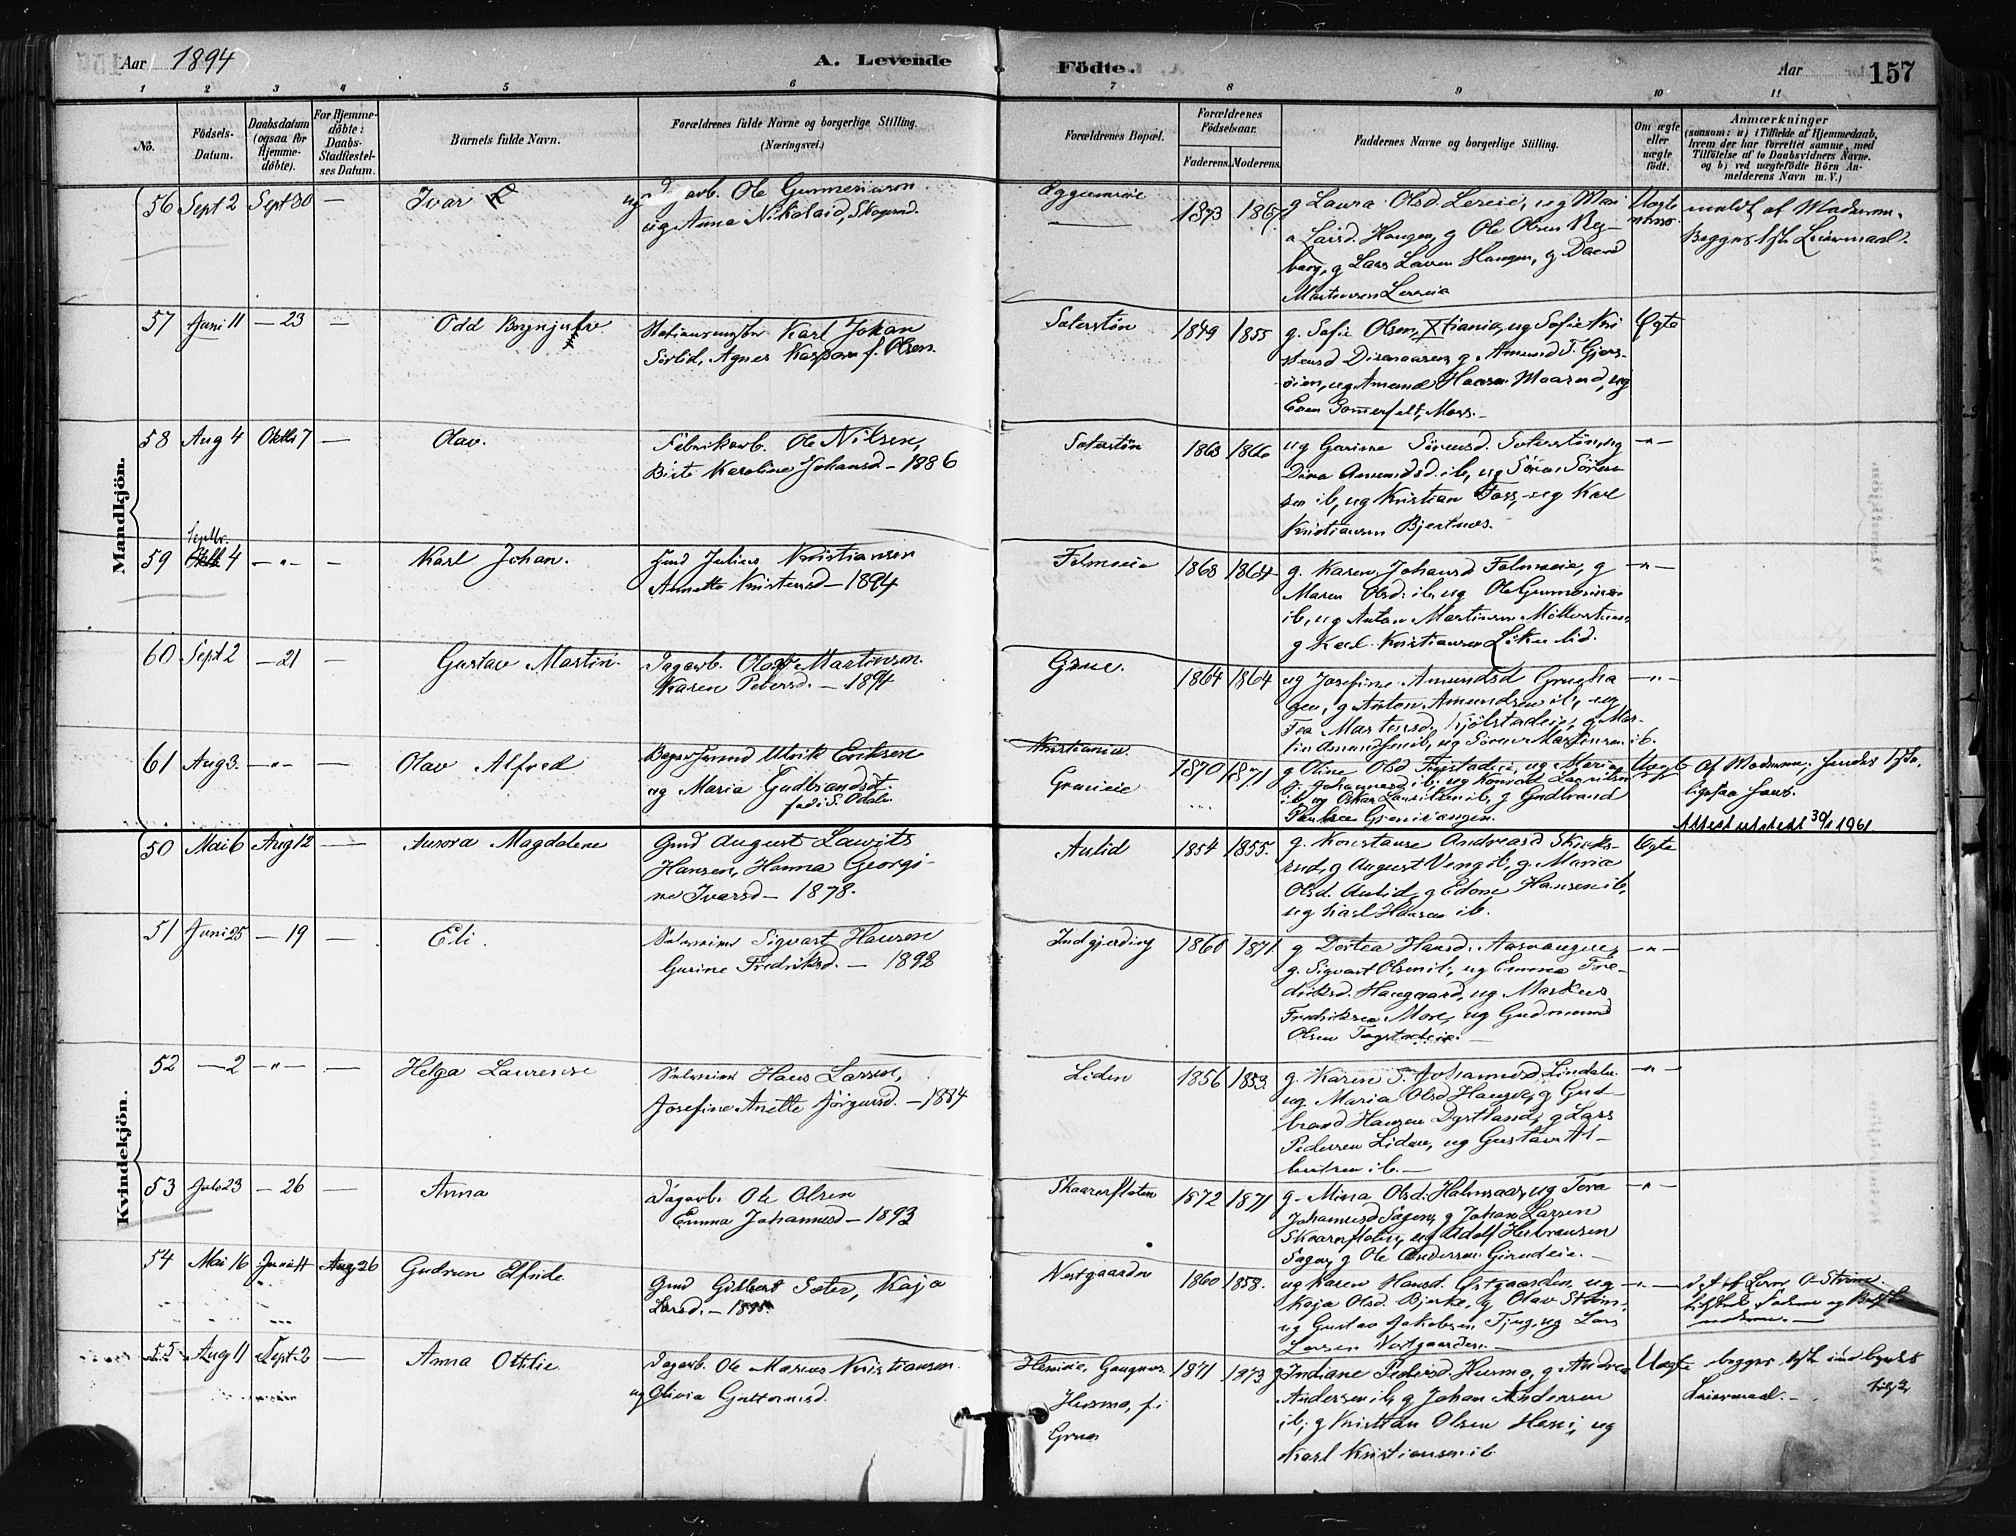 Aar 1894 A. Levende Födte. Aar 157
1 2 3 4 5 6 7 8 9 10 11
No.
Födsels-Datum.
Daabsdatum (ogsaa for Hjemme-döbte).
For Hjemme-döbte: Daabs-Stadfæstel-ses Datum.
Barnets fulde Navn.
Forældrenes fulde Navne og borgerlige Stilling.
(Næringsvei.)
Forældrenes Bopæl.
Forældrenes Födselsaar.
Faderens. Moderens.
Faddernes Navne og borgerlige Stilling.
Om ægte eller uægte födt.
Anmærkninger
(saasom: a) i Tilfælde af Hjemmedaab,
hvem der har forrettet samme, med
Tilföielse af to Daabsvidners Navne.
og b) ved uægtefödte Börn An-
melderens Navn m. V.)
Mandkjön.
56 Sept 2 Sept 30 — Ivar
arb. Ole Gunneriusen
ug Anna Nikolaisd, Skogrud.
1873 1867
g Laura Olsd Lereie, ug Mari
a Larsd. Haugen, g Ole Olsen Reg-
berg, g Lars Larsen Haugen, g
Martinsen Lereie
Uægte
meldt af Moderen.
Begges 1ste Leiermaal.
57 Juni 11 — 23 — Odd Brynjulf
Karl Johan
Sörlid, Agnes Kaspara f. Olsen.
Saterstöa 1849 1855
g. Sofie Olsen, Xtiania, ug Sofie Kri
stensd Disenaaen, g Amund T. Gjers-
öien, ug Amund Hansen Maarud, ug
Even Sommerfelt, Moss.
Ægte
58 Aug 4 Oktbr 7 — Olav.
Fabrikarb. Ole Nilsen,
Birte Karoline Johansd — 1886
Saterstöa 1863 1866
ug Gurine Sörensd. Saterstöa, ug
Dina Amundsd. ib, ug Sören Sören
sen ib, ug Kristian Foss, ug Karl
Kristiansen Bjertnæs.
— " —
59 Septbr. 4 — " — — Karl Johan.
Gmd Julius Kristiansen
Annette Kristensd — 1894
Folmoeie 1868 1864
g. Karen Johansd Folmoeie, g
Maren Olsd. ib, ug Ole Gunneriusen
ib, ug Anton Martinsen
g Karl Kristiansen
— " —
60 Sept 2 — 21 — Gustav Martin.
Dagarb. Olaf Martinsen.
Karen Petersd. — 1894
Grue. 1864 1864
ug Josefine Amundsd Grugha
gen, g Anton Amundsen ib, ug
Tea Martinsd. g Mar-
tin Amundsen ib, ug Sören Martinsen ib.
— " —
61 Aug 3. — " — — Olav Alfred
Bagersvend Ulrik Eriksen
ug Maria Gudbrandsd.
fød i S. Odalen.
Kristiania
Grueeie 1870 1871
g Oline Olsd ug
Johannesd ib, ug Konrad Lauritsen
ib, ug Oskar Lauritsen ib, g Gudbrand
Uægte
Af Moderen; hendes 1ste,
ligesaa hans.
Attest utstedt 30/1 1961
Kvindekjön.
50 Mai 6 Aug 12 — Aurora Magdalene
Gmd August Laurits
Hansen, Hanna Georgi-
ne Ivarsd — 1878.
Aulid 1854 1855.
g. Konstanse Andreasd
rud, g August Veng ib, g. Maria
Olsd. Aulid, g Edon Hansen ib,
ug Karl Hansen ib.
Ægte
51 Juni 25 — 19 — Eli.
Selveier Sigvart Hansen
Gurine Fredriksd. — 1892
Indgjerding 1860 1871
g Dortea Hansd. Aasvangen,
g. Sigvart Olsen ib, ug Emma Fre-
driksd. Haugaard, ug Markus
Fredriksen More, ug Gudmund
Olsen
— " —
52 — 2 — " — — Helga Laurense
Selveier Hans Larsen,
Josefine Anette Jörgensd. — 1884
Liden 1856 1853.
g. Karen S. Johannesd Lindalen
ug Maria Olsd Haugen, g Gud-
brand Hansen Dystland, g Lars
Pedersen Liden, ug Gustav Al-
bertsen ib. —
— " —
53 Juli 23 — 26 — Anna
Dagarb. Ole Olsen
Emma Johannesd — 1893
Skaarerfloten 1872 1871
g. Mina Olsd. Holmsaas, ug Tora
Johannesd Sagen, g Johan Larsen
Skaarerfloten, ug Adolf Herbransen
Sagen, g Ole Andersen Girudeie. —
— " —
54 Mai 16 Juni 11 Aug 26 Gudrun Elfride
Gmd Gilbert Sæter, Kaja
Larsd. —
Vestgaarden 1860 1858.
ug Karen Hansd. Östgaarden, ug
Kaja Olsd. Bjerke, g Olav Ström,
ug Gustav Jakobsen Tjug, ug Lars
Larsen Vestgaarden. —
— " —
55 Aug 11 Sept 2 Anna Otilie
Dagarb. Ole Marius Kristiansen
ug Olivia Guttormsd.
Heimeie,
Husmo, f. i
Grue
1871 1873
g Indiane Pedersd Husmo, g Andrea
Andersen ib, g Johan Andersen
ib, g Kristian Olsen ug
Karl Kristiansen ib
Uægte begges 1ste
Leiermaal. —